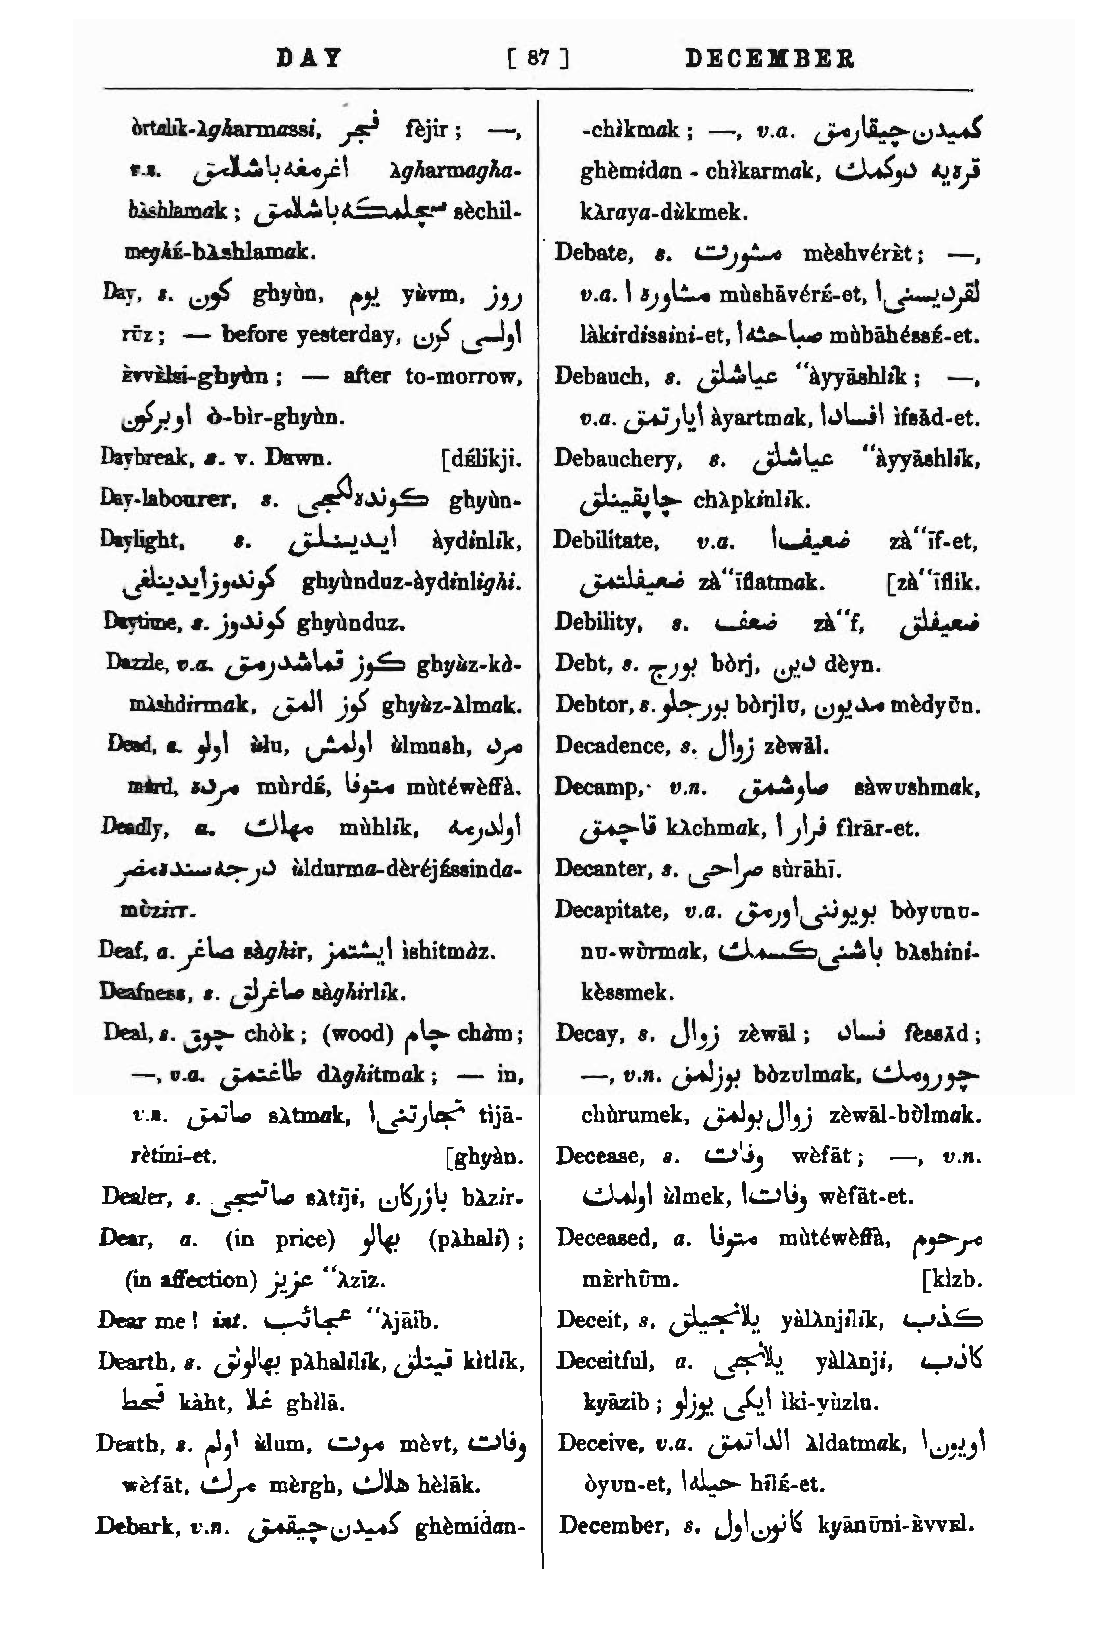 DAY [ 87 ] DECEMBER
òrtalik-àgharmassi, فجر fèjir ; —,
v.n. اغرمغه باشلامق àgharmagha-
bàshlamak ; سچلمكه باشلامق sèchil-
meghÉ-bàshlamak.
Day, s. كون ghyùn, يوم yùvm, روز
rūz ; — before yesterday, اولسى كون
Èvvèlsi-ghyùn ; — after to-morrow,
اوبركون ò-bìr-ghyùn.
Daybreak, s. v. Dawn. [dÉlikji.
Day-labourer, s. كونده لكجى ghyùn-
Daylight, s. ايدينلق àydinlik,
كوندوز ايدينلغى ghyùnduz-àydinlighi.
Daytime, s. كوندوز ghyùnduz.
Dazzle, v.a. كوز قماشدرمق ghyùz-kà-
màshdirmak, كوز المق ghyùz-àlmak.
Dead, a. اولو ùlu, اولمش ùlmush, مرد
mùrd, مرده mùrdÉ, متوفا mùtéwèffà.
Deadly, a. مهلك mùhlik, اولدرمه
درجه سنده مضر ùldurma-dèréjÉssinda-
mùzirr.
Deaf, a. صاغر sàghir, ايشتمز ishitmàz.
Deafness, s. صاغرلق sàghirlik.
Deal, s. چوق chòk ; (wood) چام chàm ;
—, v.a. طاغتمق dàghitmak ; — in,
v.n. صاتمق sàtmak, تجارتنى ا tìjā-
rètini-et. [ghyàn.
Dealer, s. صاتيجى sàtiji, بازركان bàzir-
Dear, a. (in price) بهالو (pàhali) ;
(in affection) عزيز “àzīz.
Dear me ! int. عجائب “àjāib.
Dearth, s. بهالولق pàhalilik, قيتلق kìtlik,
قحط kàht, غلا ghìlā.
Death, s. اولم ùlum, موت mèvt, وفات
wèfāt, مرك mèrgh, هلاك hèlāk.
Debark, v.n. كميدن چيقمق ghèmidan-
-chìkmak ; —, v.a. كميدن چيقارمق
ghèmidan - chìkarmak, قرهيه دوكمك
kàraya-dùkmek.
Debate, s. مشورت mèshvérÈt ; —,
v.a. مشاوره ا mùshāvérÉ-et, لقرديسنى ا
làkirdissini-et, مباحثه ا mùbāhéssÉ-et.
Debauch, s. عياشلق “àyyāshlik ; —,
v.a. ايارتمق àyartmak, افساد ا ìfsād-et.
Debauchery, s. عياشلق “àyyāshlik,
چاپقينلق chàpkinlik.
Debilitate, v.a. ضعيف ا zà“īf-et,
ضعيفلتمق zà“īflatmak. [zà“īflik.
Debility, s. ضعف zà“f, ضعيفلق
Debt, s. بورج bòrj, دين dèyn.
Debtor, s. بورجلو bòrjlu, مديون mèdyūn.
Decadence, s. زوال zèwāl.
Decamp, v.n. صاوشمق sàwushmak,
قاچمق kàchmak, فرار ا fìrār-et.
Decanter, s. صراحى sùrāhī.
Decapitate, v.a. بويوننى اورمق bòyunu-
nu-wùrmak, باشنى كسمك bàshini-
kèssmek.
Decay, s. زوال zèwāl ; فساد fèssād ;
—, v.n. بوزلمق bòzulmak, چورومك
chùrumek, زوال بولمق zèwāl-bùlmak.
Decease, s. وفات wèfāt ; —, v.n.
اولمك ùlmek, وفات ا wèfāt-et.
Deceased, a. متوفا mùtéwèffà, مرحوم
mÈrhūm. [kìzb.
Deceit, s. يلانجيلق yàlànjilik, كذب
Deceitful, a. يلانجى yàlànji, كاذب
kyāzib ; ايكى يوزلو ìki-yùzlu.
Deceive, v.a. الداتمق àldatmak, اويون ا
òyun-et, حيله ا hīlÉ-et.
December, s. كانون اول kyānūni-Èvvel.